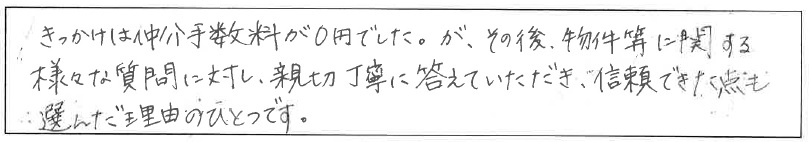 きっかけは仲介手数料が0円でした。が、その後、物件等に関する
様々な質問に対し、親切丁寧に答えていただき、信頼できた点も
選んだ理由のひとつです。